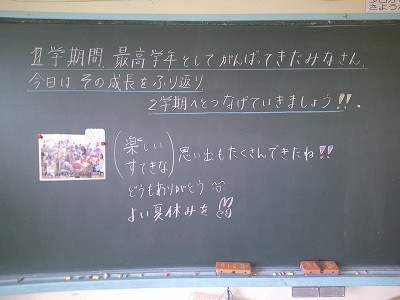 1学期間、最高学年としてがんばってきたみなさん。
今日はその成長をふり返り
2学期へとつなげていきましょう!!
(楽しい
すてきな)思い出もたくさんできたね!!
どうもありがとう
よい夏休みを